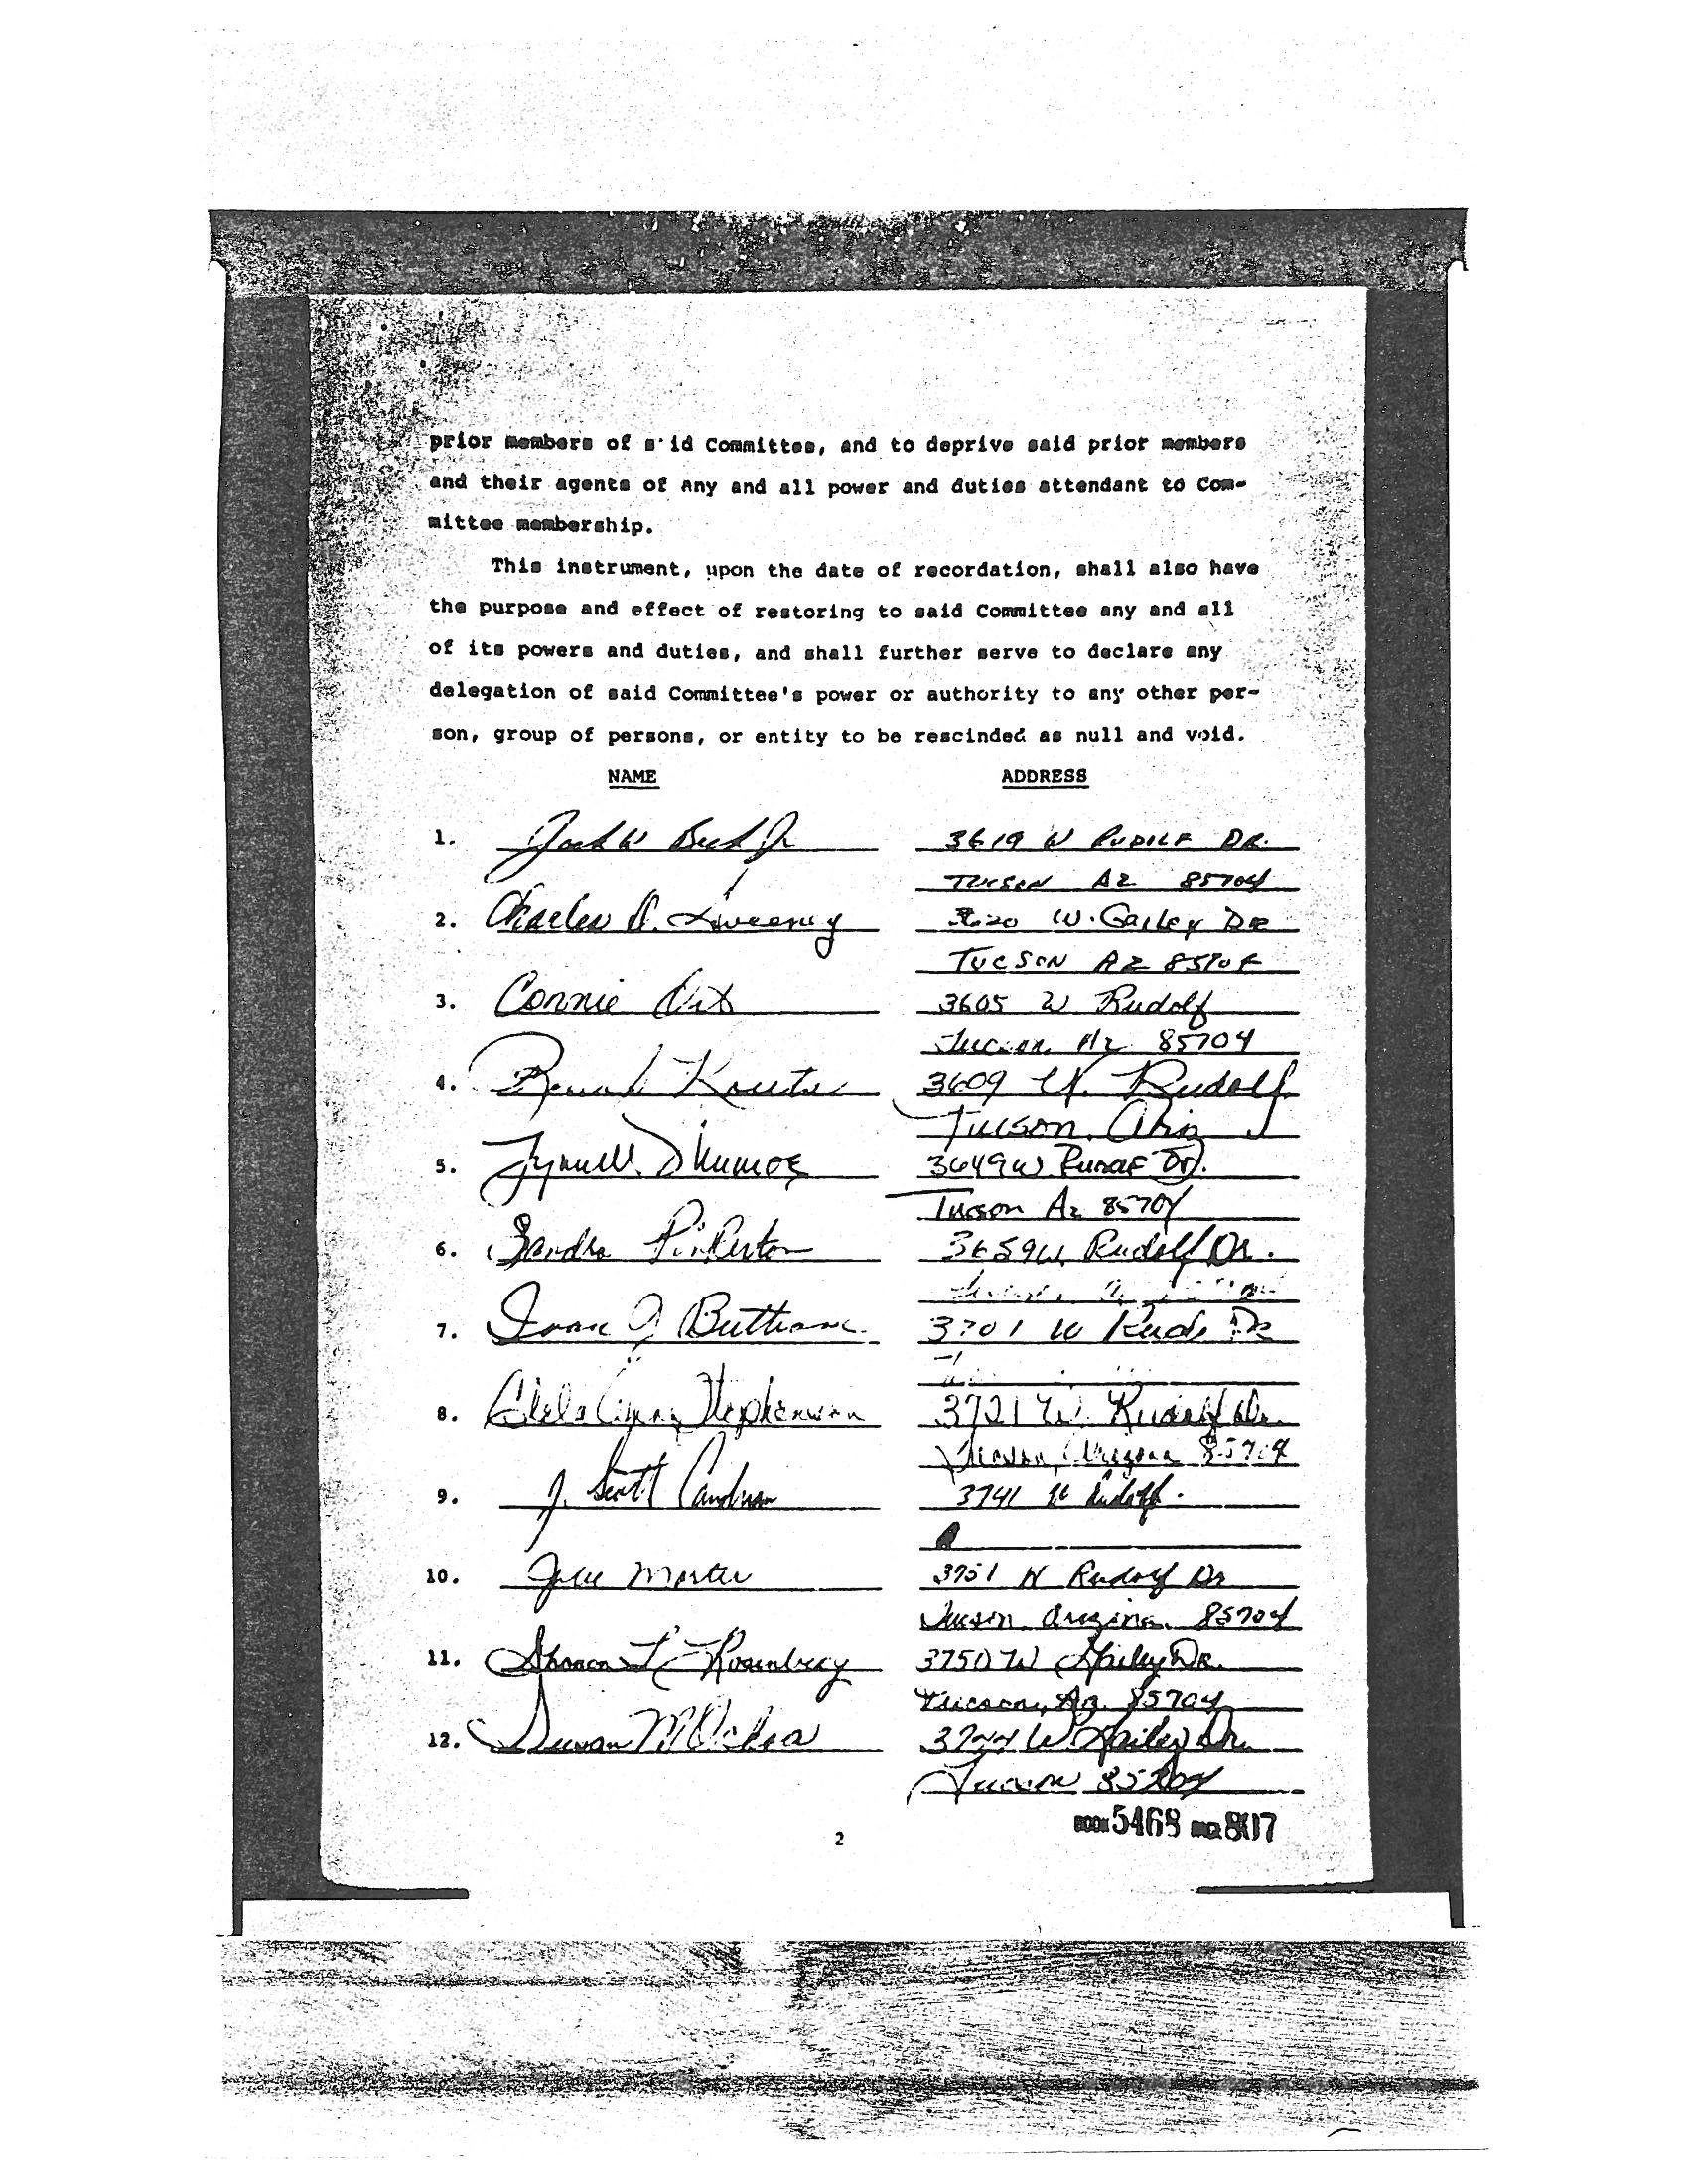 prior members of s'id Committee, and to deprive said prior members
and their agents of any and all power and duties attendant to Com-
mittee membership.
This instrument, upon the date of recordation, shall also have
the purpose and effect of restoring to said Committee any and all
of its powers and duties, and shall further serve to declare any
delegation of said Committee's power or authority to any other per-
son, group of persons, or entity to be rescinded as null and void.
NAME ADDRESS
1. 3619 W DR.
TUCSON AZ 85704
2. Charles D. Sweeney W. Gailey DR
TUCSON AZ
3. Connie 3605 W Rudolf
Tucson, Az 85704
4. 3609 W. Rudolf
Tucson,
5. 3649 W. Dr.
Tucson Az 85704
6. Sandra Pinkerton 3659 W. Rudolf Dr.
7. 3701 W Dr
8. Stephenson 3721 W. Rudolf Dr.
Tucson, Arizona 85704
9. J. Scott 3741 W Rudolf.
10. 3751 W Rudolf Dr
Tucson Arizona 85704
11. 3750 W Gailey DR.
Tucson, Az. 85704
12. Susan M Ochoa 3744 W Gailey Dr.
Tucson 85704
BOOK 5468 PAGE 807
2